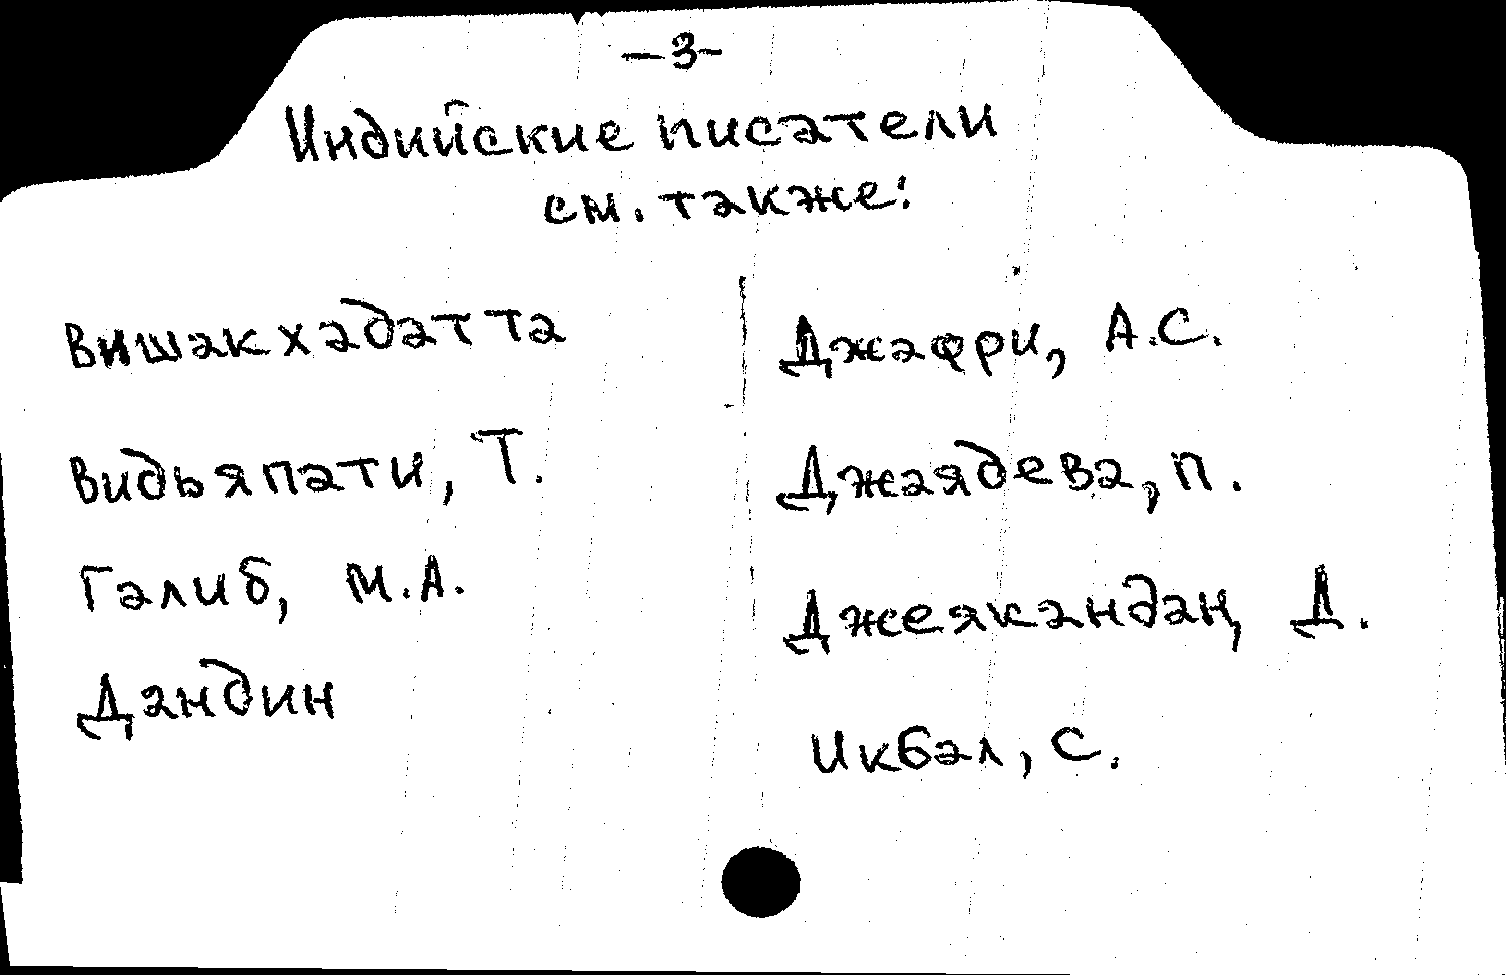 — 3 -
Индийские писатели
см. также:
Вишакхадатта
Видьяпати, Т.
Галиб, М.А.
Дандин
Джафри, А.С.
Джаядева, П.
Джеякандан, Д.
Икбал, С.